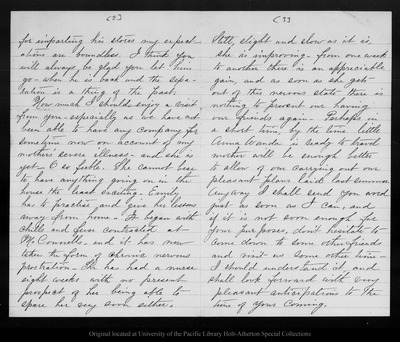 (2)
for imparting his stores my expect-
ations are boundless. I think you
will always be glad you let him
go - when he is back and the sepa-
ration is a thing of the past.
How much I should enjoy a visit
from you - especially as we have not
been able to have any company for
sometime now on account of my
mother's severe illness - and she is
yet O so feeble. She cannot bear
to have anything going on in the
house the least exciting - Emily
has to practise, and give her lessons
away from home - It began with
chills and fever contracted at
McConnells, and it has now
taken the form of chronic nervous
prostration. She has had a nurse
eight weeks with no present
prospect of her being able to
spare her very soon either.
(3)
Still, slight and slow as it is,
she is improving - from one week
to another there is an appreciable
gain, and as soon as she gets
out of this nervous state there is
nothing to prevent our having
our friends again - Perhaps in
a short time, by the time little
Anna Wanda is ready to travel
mother will be enough better
to allow of our carrying out our
pleasant plans laid last summer
Anyway I shall send you word
just as soon as I can, and
if it is not soon enough for
your purposes, don't hesitate to
come down to some other friends
and visit us some other time -
I should understand it, and
shall look forward with very
pleasant anticipations to the
time of your coming.
Original located at University of the Pacific Library Holt-Atherton Special Collections